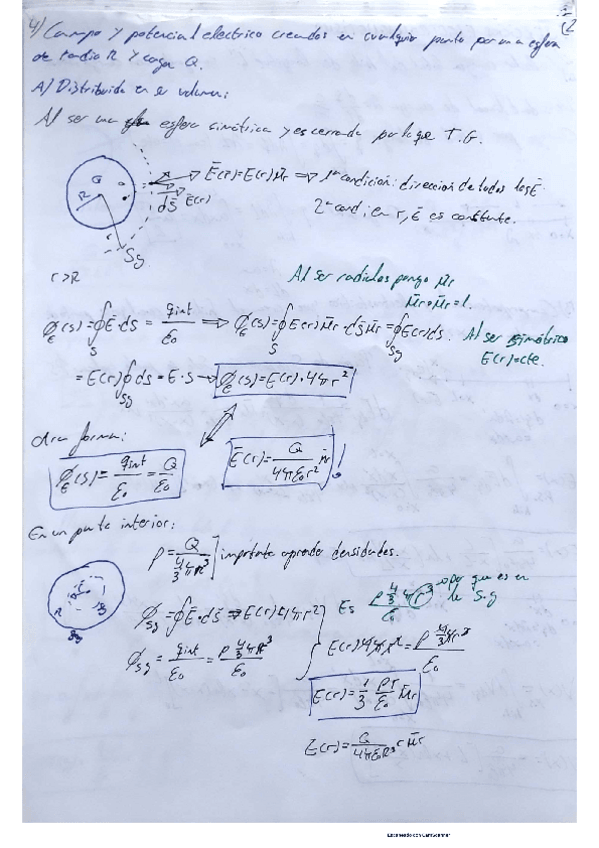 2
4) Campo y potencial electrico creados en cualquier punto por una esfera
de radio R y carga Q.
A) Distribuida en el volumen:
Al ser una esfera simétrica y es cerrada por lo que T.G.
Ē(r)=E(r)μ̄r ⇒ 1ª condición: dirección de todos los Ē.
R
dS̄ Ē(r)
2ª cond: en r, Ē es constante.
Sg
r>R
Al ser radiales pongo μ̄r
μ̄r•μ̄r=1.
ϕE(s)=∮S Ē·ds = qint/ε0 ⇒ ϕE(s)=∮S E(r)μ̄r·ds̄μ̄r=∮Sg E(r)ds.
Al ser simétrico
E(r)=cte.
=E(r)∮Sg ds=E·S→ ϕE(s)=E(r)·4πr²
otra forma:
ϕE(s)=qint/ε0=Q/ε0
Ē(r)=Q/4πε0r² μ̄r !
En un punto interior:
ρ=Q/(4/3 πR³) ] importante aprender densidades.
R
Sg
ϕSg=∮Ē·ds̄ ⇒ E(r)4πr²
Es ρ 4/3 π r³/ε0 → por que es en
la Sg
ϕSg=qint/ε0=ρ 4/3 πr³/ε0
E(r)4πr²=ρ 4/3 πr³/ε0
E(r)=1/3 ρr/ε0 μ̄r
E(r)=Q/4πε0R³ r μ̄r
Escaneado con CamScanner